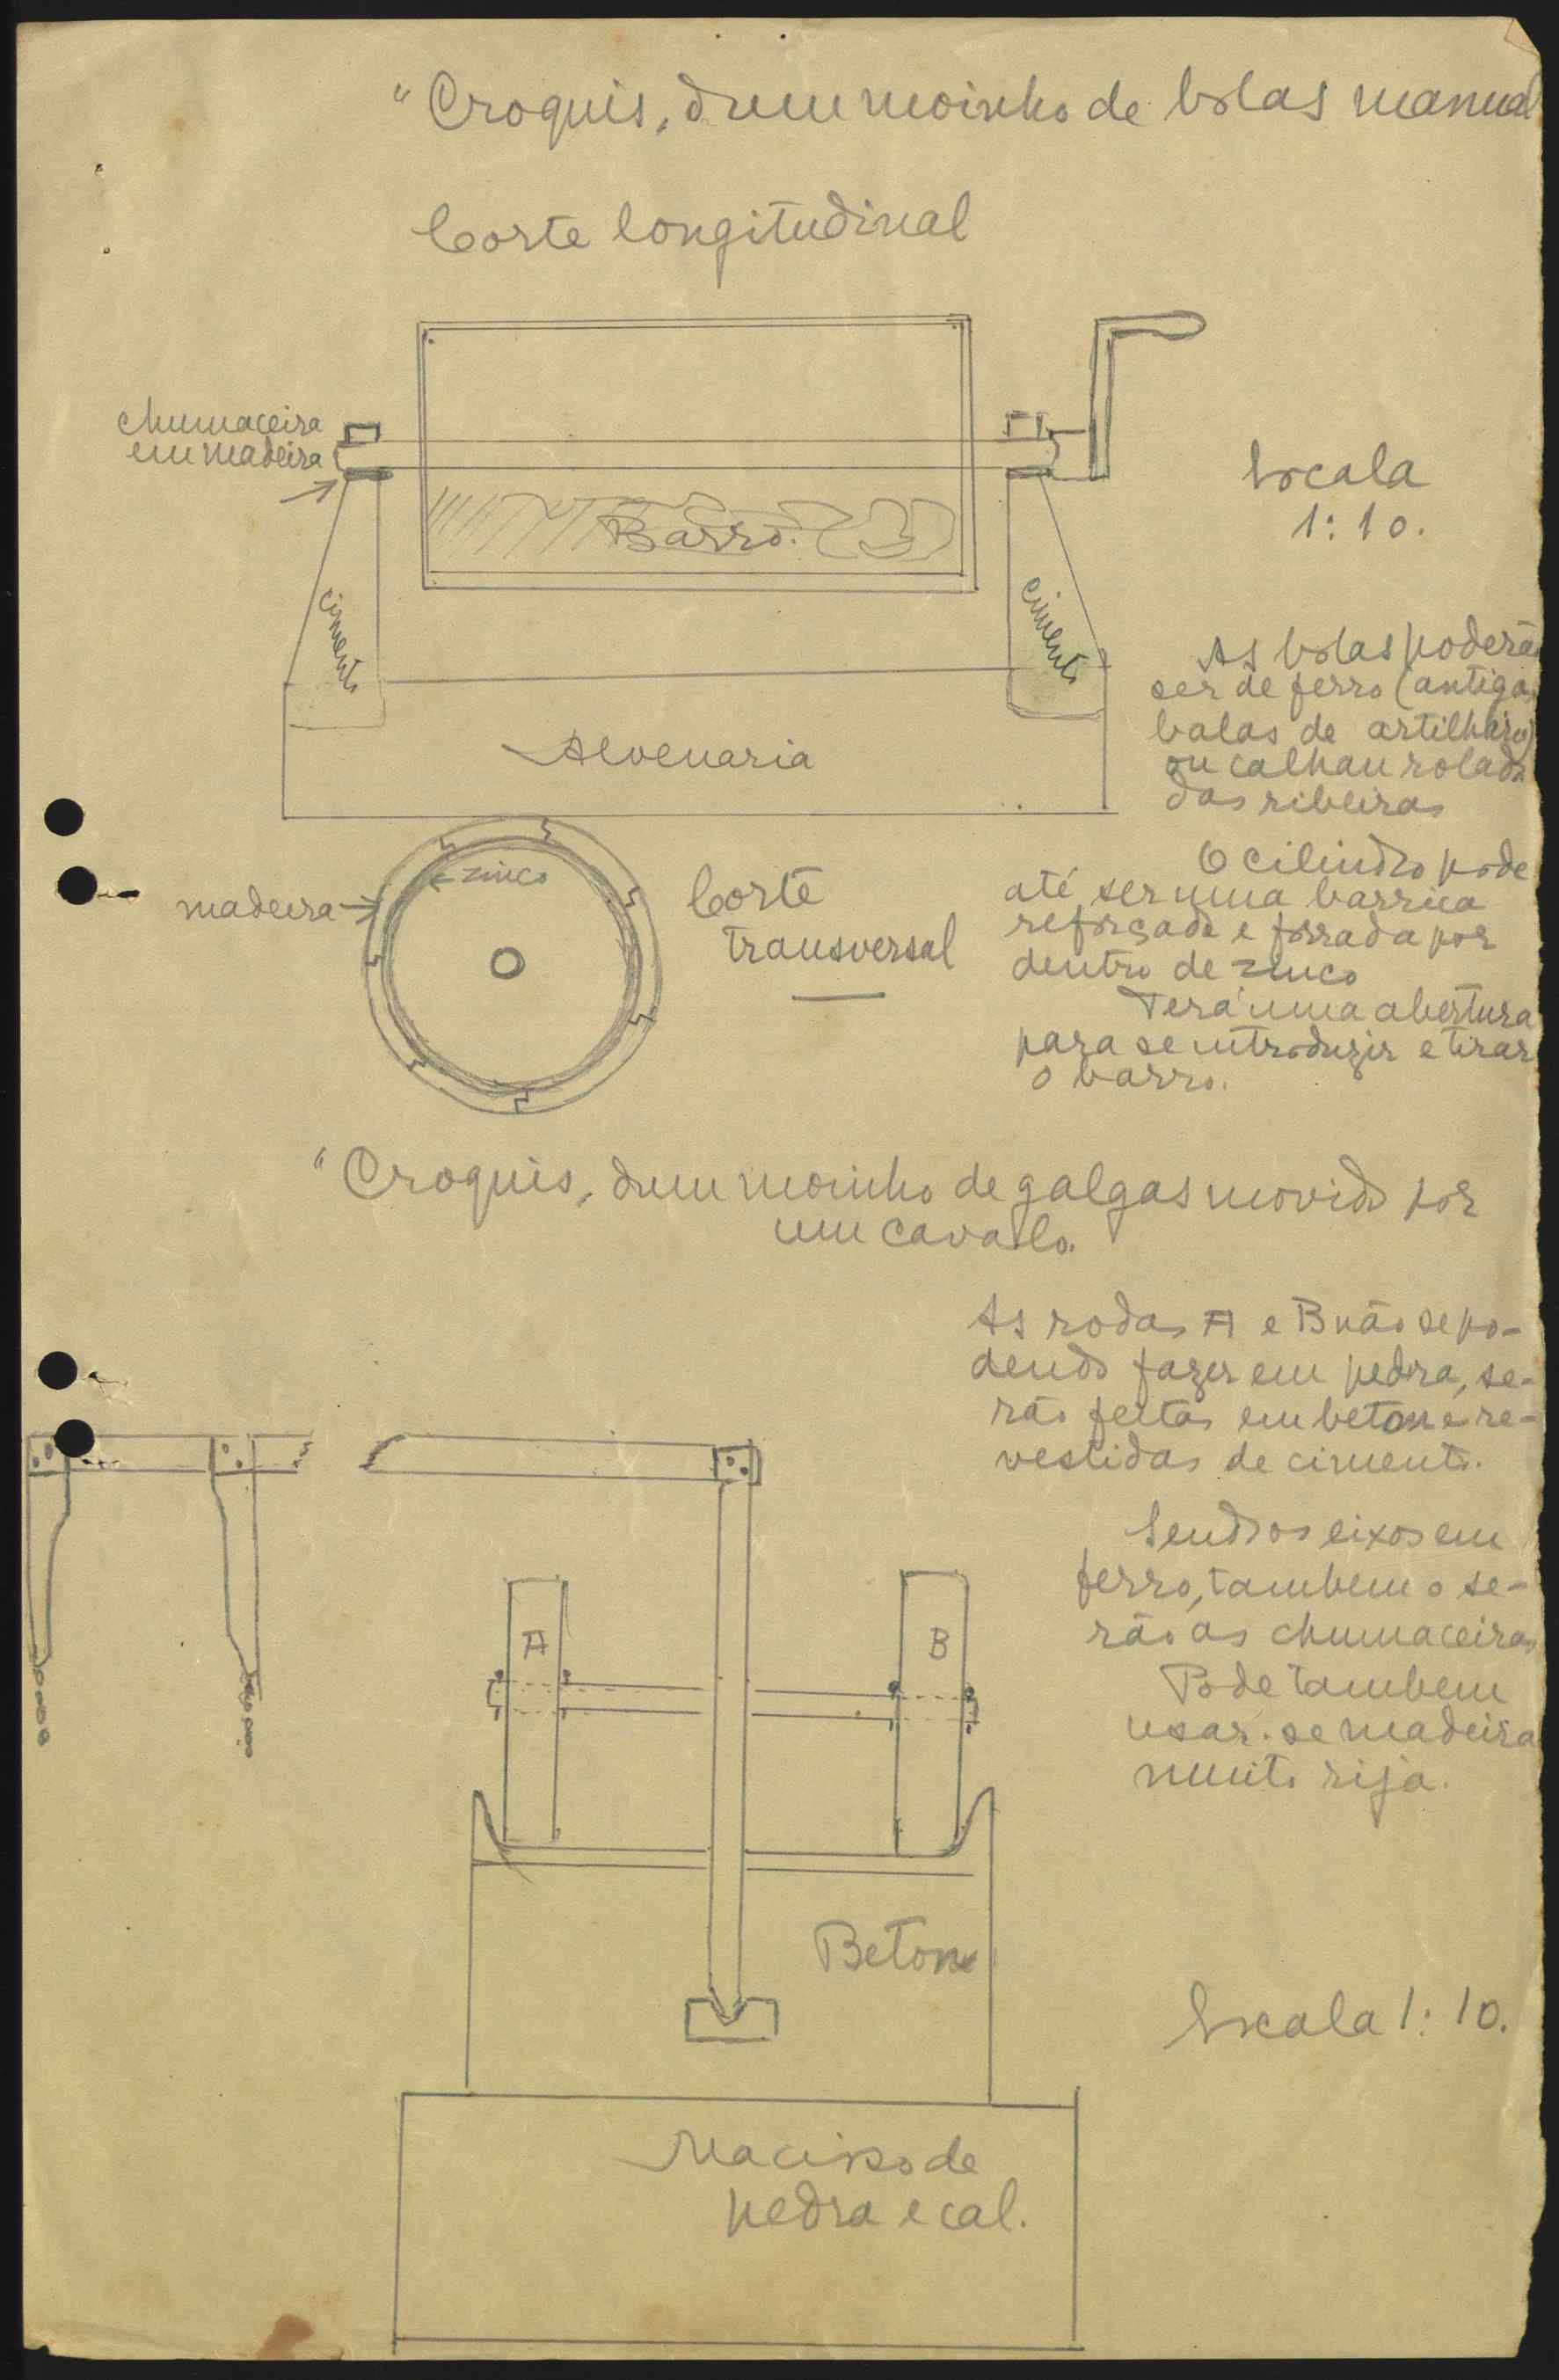 "Croquis, dum moinho de bolas manual
Corte longitudinal
chumaceira
em madeira
Barro.
Escala
1:10.
cimento
cimento
As bolas poderão
ser de ferro (antigas
balas de artilharia)
ou calhau rolado
das ribeiras
Alvenaria
O cilindro pode
até ser uma barrica
reforçada e forrada por
dentro de zinco
Terá uma abertura
para se introduzir e tirar
o barro.
zinco
madeira
Corte
transversal
"Croquis, dum moinho de galgas movido por
um cavalo.
As rodas A e B não se po-
dendo fazer em pedra, se-
rão feitas em beton e re-
vestidas de cimento.
Sendo os eixos em
ferro, tambem o se-
rão as chumaceiras
Pode tambem
usar-se madeira
muito rija.
A
B
Beton
Escala 1:10.
Macisso de
pedra e cal.